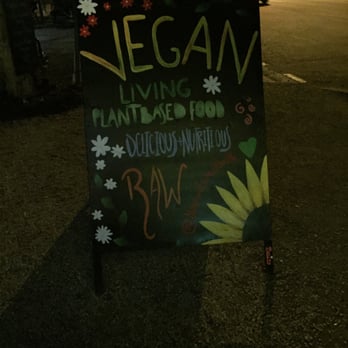 VEGAN
LIVING
PLANTBASED FOOD
DELICIOUS + NUTRITIOUS
RAW